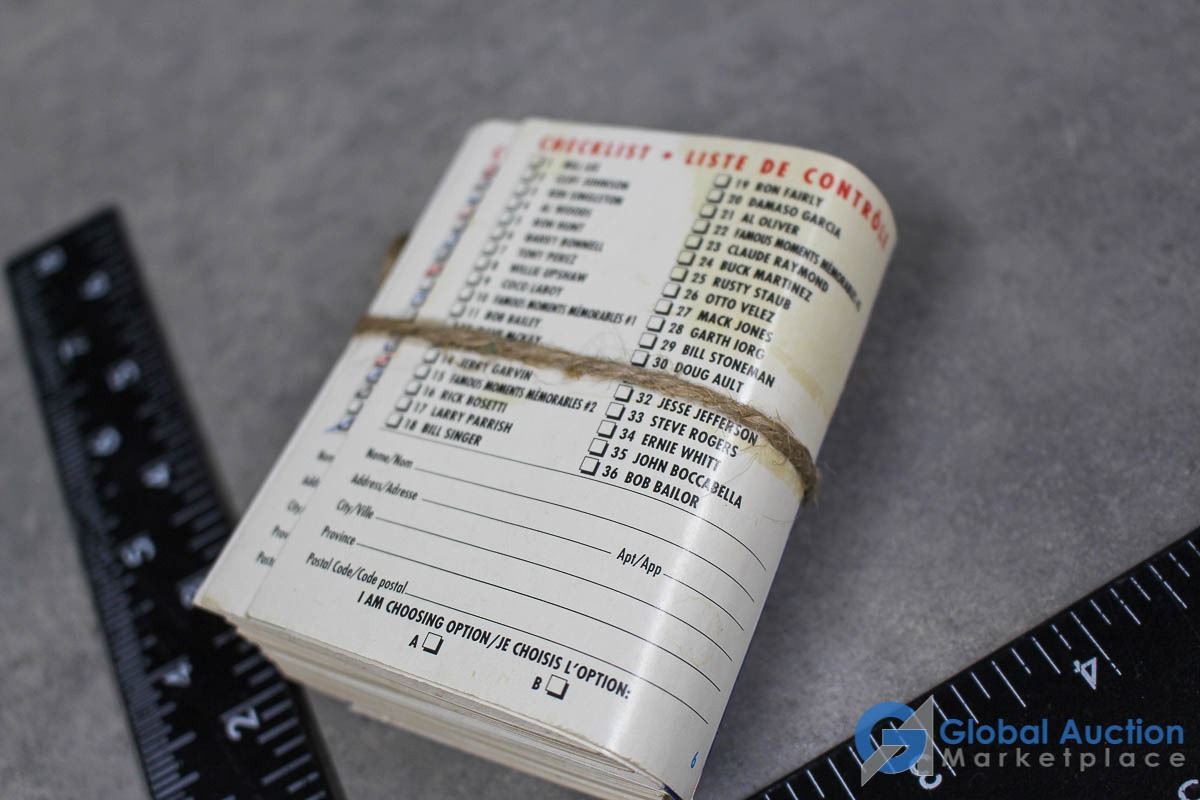 CHECKLIST • LISTE DE CONTRÔLE
BILL LEE
CLIFF JOHNSON
KEN SINGLETON
AL WOODS
RON HUNT
BARRY BONNELL
7 TONY PEREZ
8 WILLIE UPSHAW
9 COCO LABOY
10 FAMOUS MOMENTS MÉMORABLES #1
11 BOB BAILEY
14 JERRY GARVIN
15 FAMOUS MOMENTS MÉMORABLES #2
16 RICK BOSETTI
17 LARRY PARRISH
18 BILL SINGER
19 RON FAIRLY
20 DAMASO GARCIA
21 AL OLIVER
22 FAMOUS MOMENTS MÉMORABLES
23 CLAUDE RAYMOND
24 BUCK MARTINEZ
25 RUSTY STAUB
26 OTTO VELEZ
27 MACK JONES
28 GARTH IORG
29 BILL STONEMAN
30 DOUG AULT
32 JESSE JEFFERSON
33 STEVE ROGERS
34 ERNIE WHITT
35 JOHN BOCCABELLA
36 BOB BAILOR
Name/Nom
Address/Adresse
City/Ville Apt/App
Province
Postal Code/Code postal
I AM CHOOSING OPTION/JE CHOISIS L'OPTION:
A
B
6
5
4
5
4
2
4
Global Auction
Marketplace